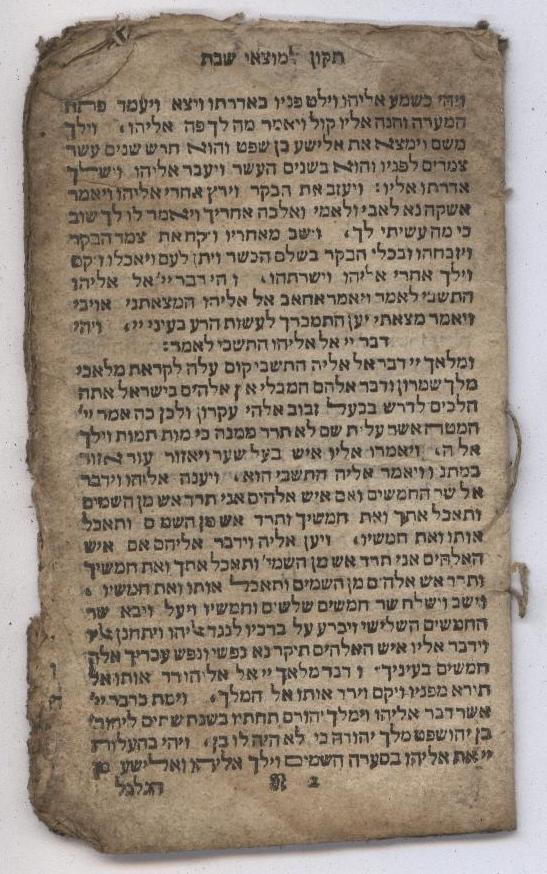 תקון למוצאי שבת
ויהי כשמע אליהו וילט פניו באדרתו ויצא ויעמד פתח
המערה והנה אליו קול ויאמר מה לך פה אליהו׃ וילך
משם וימצא את אלישע בן שפט והוא חרש שנים עשר
צמדים לפניו והוא בשנים העשר ויעבר אליהו וישלך
אדרתו אליו׃ ויעזב את הבקר וירץ אחרי אליהו ויאמר
אשקה נא לאבי ולאמי ואלכה אחריך ויאמר לו לך שוב
כי מה עשיתי לך׃ וישב מאחריו ויקח את צמד הבקר
ויזבחהו ובכלי הבקר בשלם הבשר ויתן לעם ויאכלו ויקם
וילך אחרי אליהו וישרתהו׃ ויהי דבר יי׳ אל אליהו
התשבי לאמר ויאמר אחאב אל אליהו המצאתני אויבי
ויאמר מצאתי יען התמכרך לעשות הרע בעיני יי׳ ויהי
דבר יי אל אליהו התשבי לאמר׃
ומלאך יי דבר אל אליה התשבי קום עלה לקראת מלאכי
מלך שמרון ודבר אלהם המבלי אין אלהים בישראל אתה
הלכים לדרש בבעל זבוב אלהי עקרון ולכן כה אמר יי׳
המטה אשר עלית שם לא תרד ממנה כי מות תמות וילך
אליה׃ ויאמרו אליו איש בעל שער ואזור עור אזור
במתניו ויאמר אליה התשבי הוא׃ ויענה אליהו וידבר
אל שר החמשים ואם איש אלהים אני תרד אש מן השמים
ותאכל אתך ואת חמשיך ותרד אש מן השמים ותאכל
אותו ואת חמשיו׃ ויען אליה וידבר אליהם אם איש
האלהים אני תרד אש מן השמי׳ ותאכל אתך ואת חמשיך
ותרד אש אלהים מן השמים ותאכל אותו ואת חמשיו׃
וישב וישלח שר חמשים שלשים וחמשיו ויעל ויבא שר
החמשים השלישי ויכרע על ברכיו לנגד אליהו ויתחנן אליו
וידבר אליו איש האלהים תיקר נא נפשי ונפש עבדיך אלה
חמשים בעיניך׃ וידבר מלאך יי אל אליהו רד אותו אל
תירא מפניו ויקם וירד אותו אל המלך׃ וימת כדבר יי׳
אשר דבר אליהו וימלך יהורם תחתיו בשנת שתים ליהור׳
בן יהושפט מלך יהודה כי לא היה לו בן׃ ויהי בהעלות
יי את אליהו בסערה השמים וילך אליהו ואלישע מן
ב הגלגל